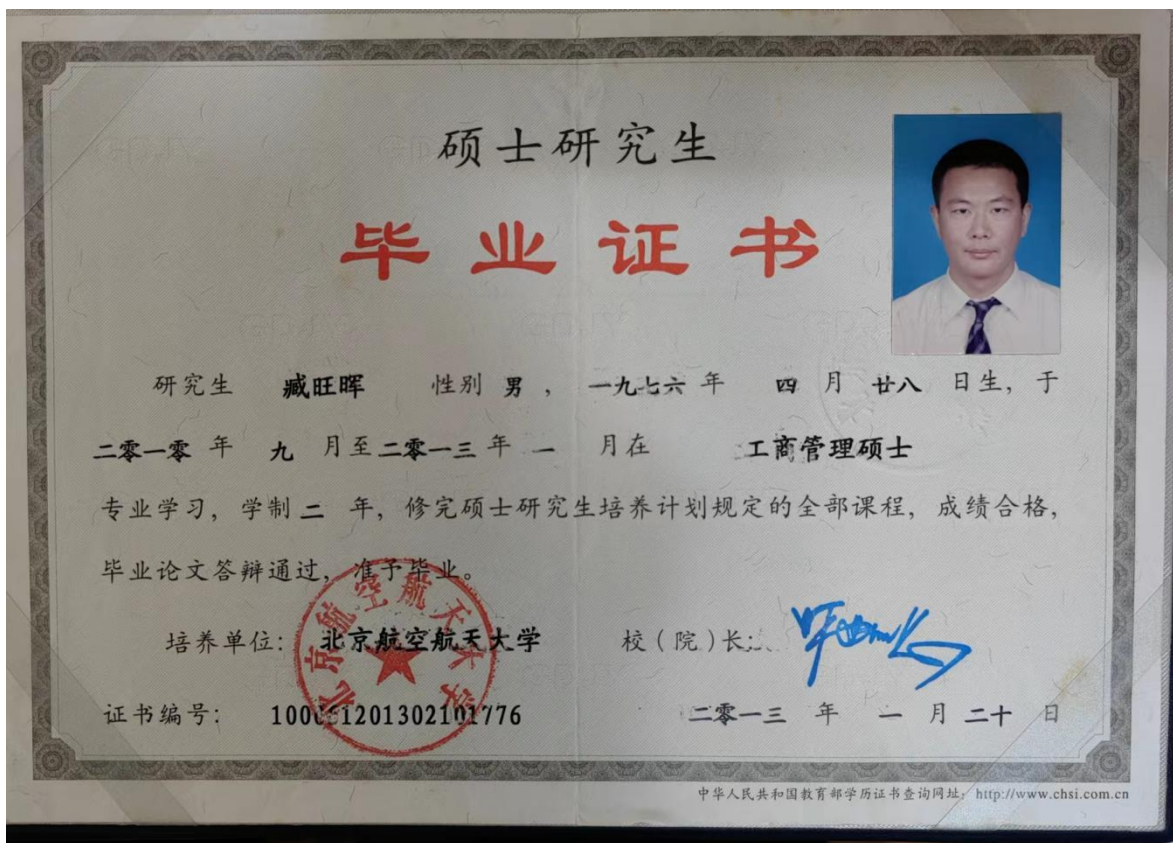 硕士研究生
毕业证书
研究生 臧旺晖 性别 男 , 一九七六 年 四 月 廿八 日生, 于
二零一零 年 九 月至 二零一三 年 一 月在 工商管理硕士
专业学习, 学制 二 年, 修完硕士研究生培养计划规定的全部课程, 成绩合格,
毕业论文答辩通过, 准予毕业。
培养单位: 北京航空航天大学 校(院)长:
北京航空航天大学
证书编号: 二零一三 年 一 月 二十 日
中华人民共和国教育部学历证书查询网址: http://www.chsi.com.cn